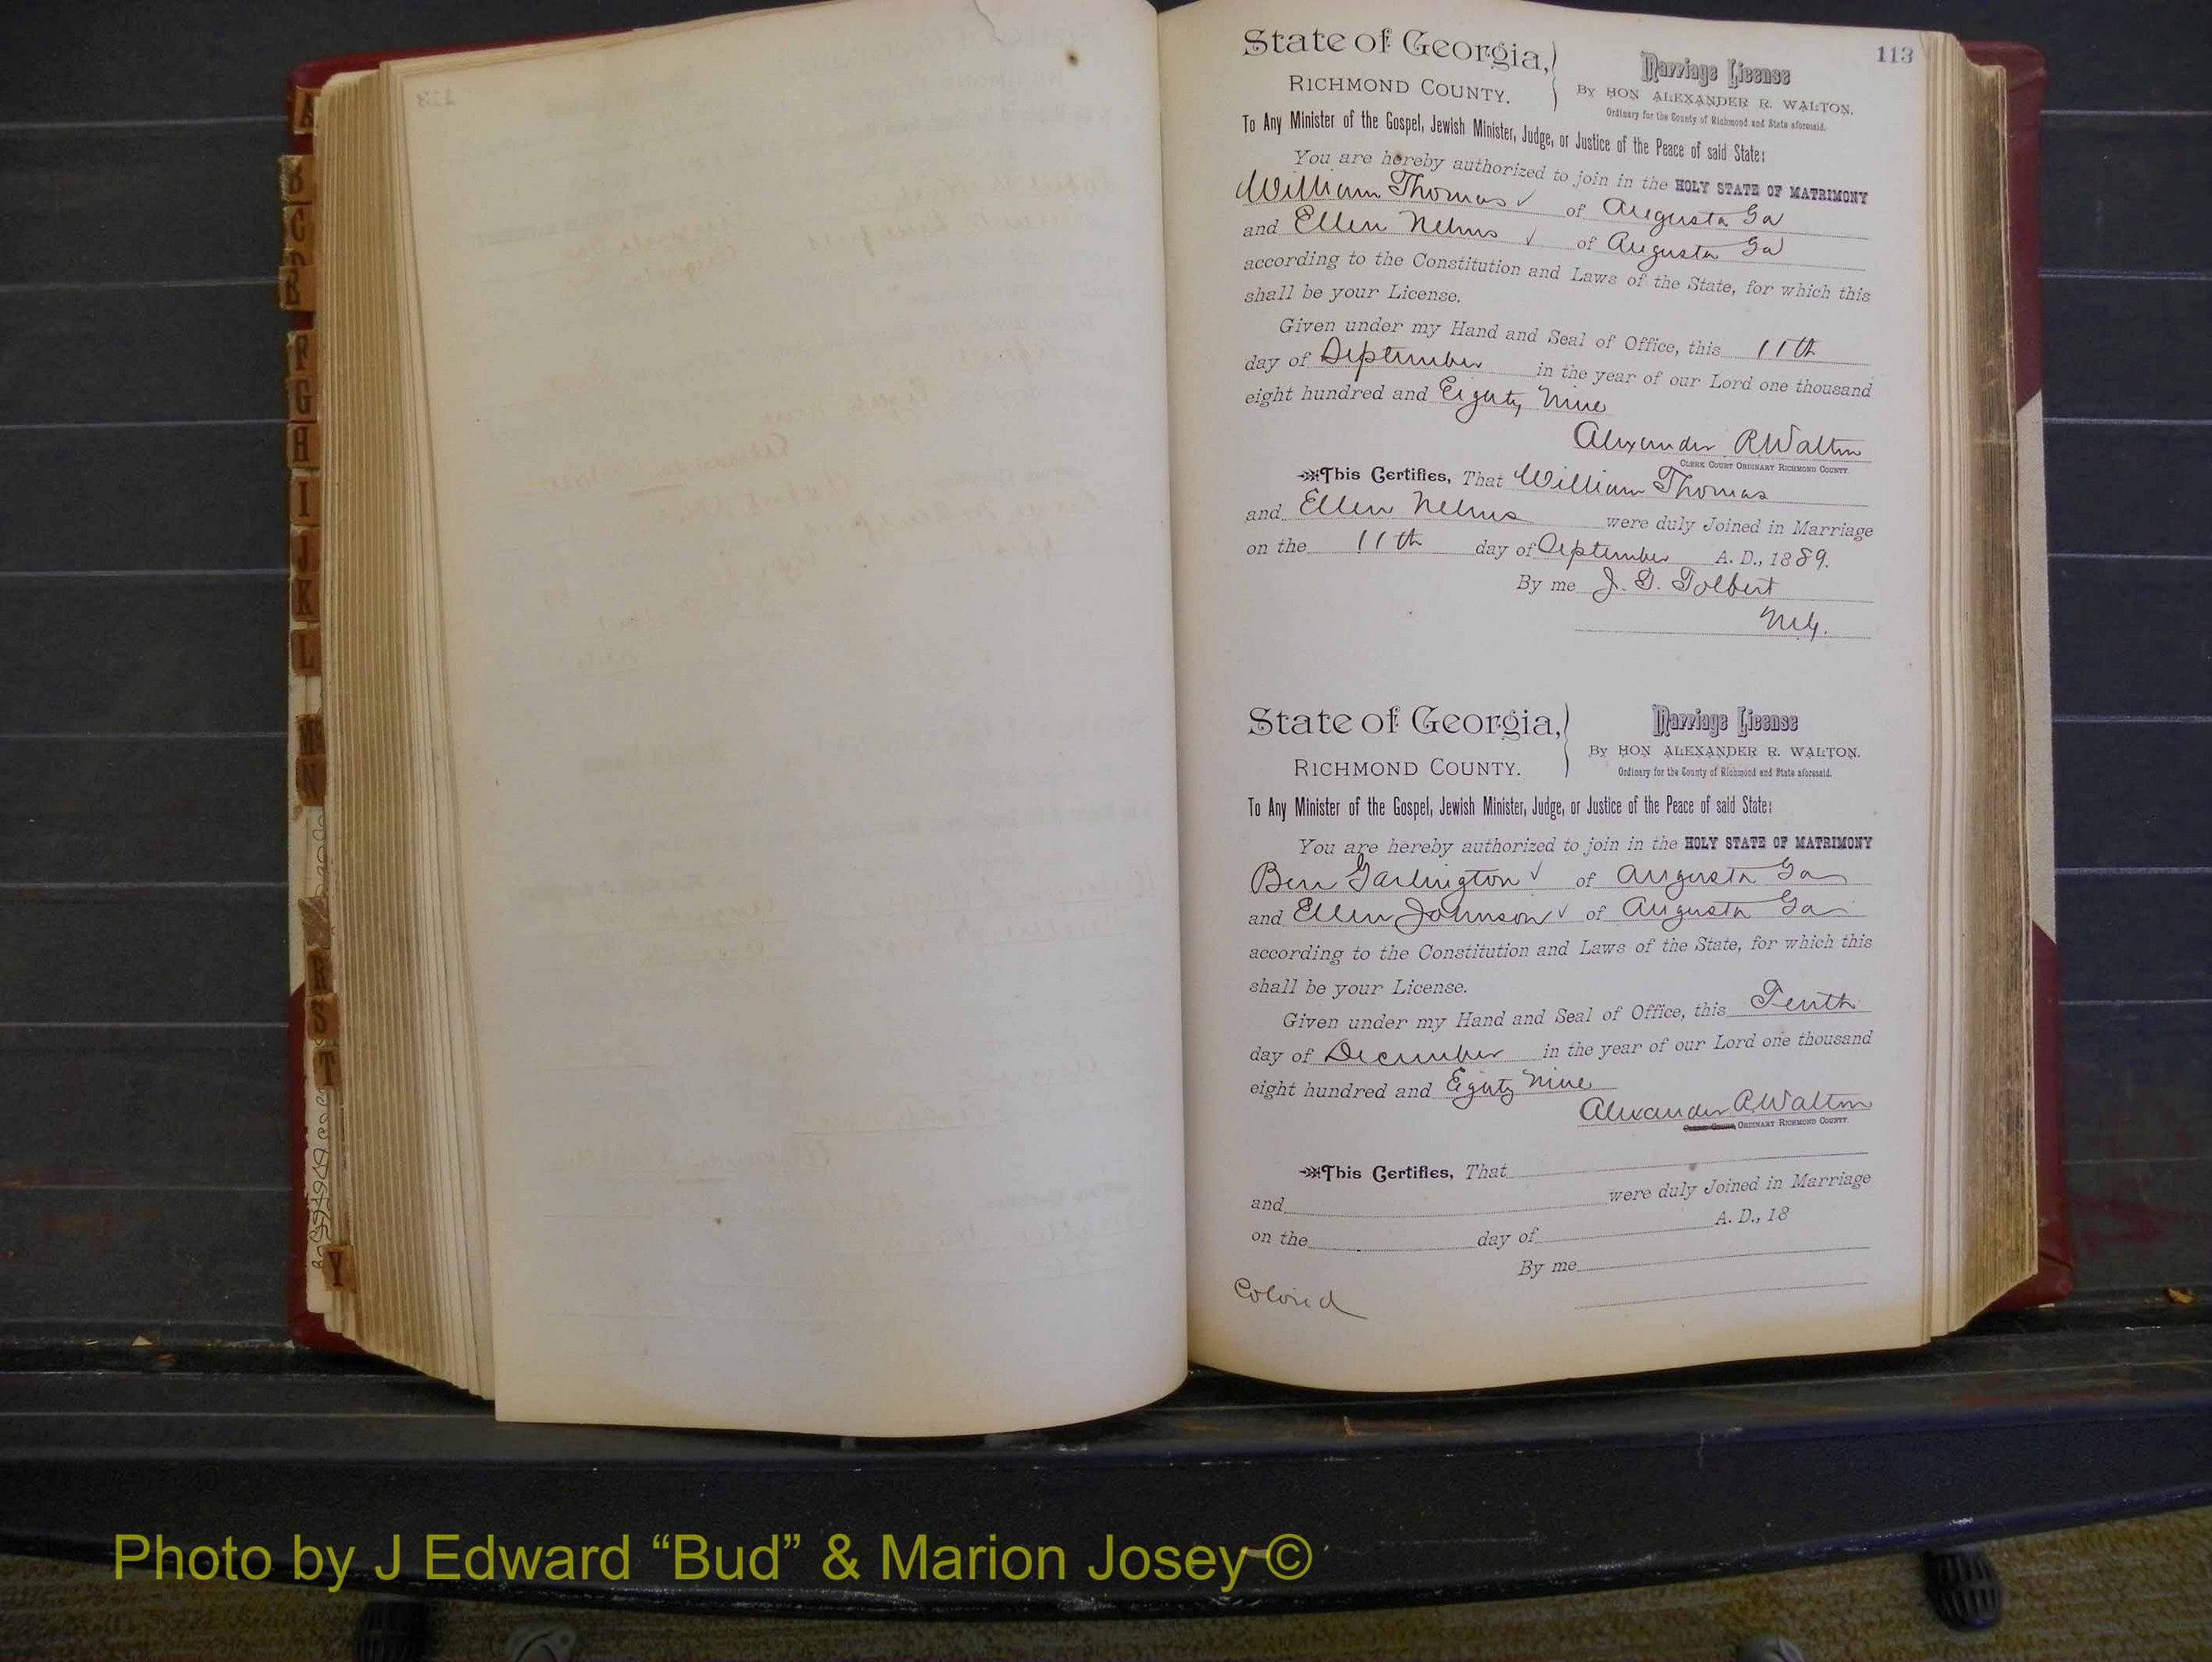 113
State of Georgia,
RICHMOND COUNTY.
Marriage License
By HON ALEXANDER R. WALTON,
Ordinary for the County of Richmond and State aforesaid.
To Any Minister of the Gospel, Jewish Minister, Judge, or Justice of the Peace of said State:
You are hereby authorized to join in the HOLY STATE OF MATRIMONY
William Thomas ✓ of Augusta Ga
and Ellen Nelms ✓ of Augusta Ga
according to the Constitution and Laws of the State, for which this
shall be your License.
Given under my Hand and Seal of Office, this 11th
day of September in the year of our Lord one thousand
eight hundred and Eighty Nine
Alexander R Walton
CLERK COURT ORDINARY RICHMOND COUNTY.
This Certifies, That William Thomas
and Ellen Nelms were duly Joined in Marriage
on the 11th day of September A. D., 1889.
By me J. T. Tolbert
M.G.
State of Georgia,
RICHMOND COUNTY.
Marriage License
By HON ALEXANDER R. WALTON.
Ordinary for the County of Richmond and State aforesaid.
To Any Minister of the Gospel, Jewish Minister, Judge, or Justice of the Peace of said State:
You are hereby authorized to join in the HOLY STATE OF MATRIMONY
Ben Garlington ✓ of Augusta Ga
and Ellen Johnson ✓ of Augusta Ga
according to the Constitution and Laws of the State, for which this
shall be your License.
Given under my Hand and Seal of Office, this Tenth
day of December in the year of our Lord one thousand
eight hundred and Eighty Nine
Alexander R Walton
CLERK COURT, ORDINARY RICHMOND COUNTY.
This Certifies, That
and were duly Joined in Marriage
on the day of A. D., 18
By me
Colored
A
B
C
D
E
F
G
H
I
J
K
L
Mc
N
R
S
T
Y
Photo by J Edward “Bud” & Marion Josey ©